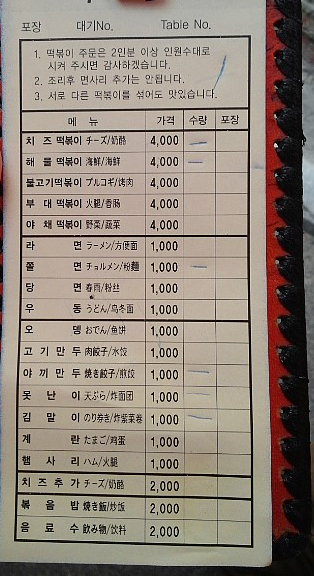 포장 대기No. Table No.
1. 떡볶이 주문은 2인분 이상 인원수대로
시켜 주시면 감사하겠습니다.
2. 조리후 면사리 추가는 안됩니다.
3. 서로 다른 떡볶이를 섞어도 맛있습니다.
메 뉴 가격 수량 포장
치 즈 떡볶이 チーズ/奶酪 4,000
해 물 떡볶이 海鮮/海鲜 4,000
불고기떡볶이 プルコギ/烤肉 4,000
부 대 떡볶이 火腿/香肠 4,000
야 채 떡볶이 野菜/蔬菜 4,000
라 면 ラーメン/方便面 1,000
쫄 면 チョルメン/粉麵 1,000
당 면 春雨/粉丝 1,000
우 동 うどん/乌冬面 1,000
오 뎅 おでん/鱼饼 1,000
고 기 만 두 肉餃子/水饺 1,000
야 끼 만 두 焼き餃子/煎饺 1,000
못 난 이 天ぷら/炸面团 1,000
김 말 이 のり巻き/炸紫菜卷 1,000
계 란 たまご/鸡蛋 1,000
햄 사 리 ハム/火腿 1,000
치 즈 추 가 チーズ/奶酪 2,000
볶 음 밥 焼き飯/炒饭 2,000
음 료 수 飲み物/饮料 2,000